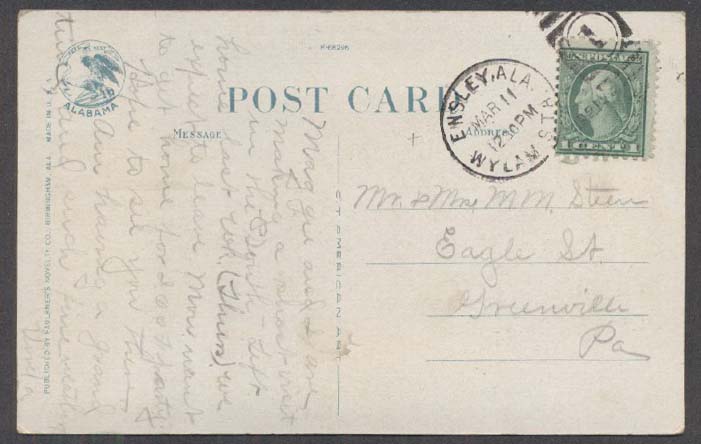 P-68296
ALABAMA
POST CARD
MESSAGE
ADDRESS
ENSLEY, ALA.
MAR 11
12 30 PM
WYLAM STA
U.S. POSTAGE
1 CENT 1
Mr. & Mrs. M.M. Steen
Eagle St.
Greenville
Pa
Margue and I are
making a short visit
in the South - Left
home last wk. (Thurs) we
expect to leave Mon. want
to get home for
Hope to see you then
Am having a grand
time and such fine weather
PUBLISHED BY FAULKNER'S NOVELTY CO., BIRMINGHAM, ALA.
MADE IN U. S. A.
C. T. AMERICAN ART